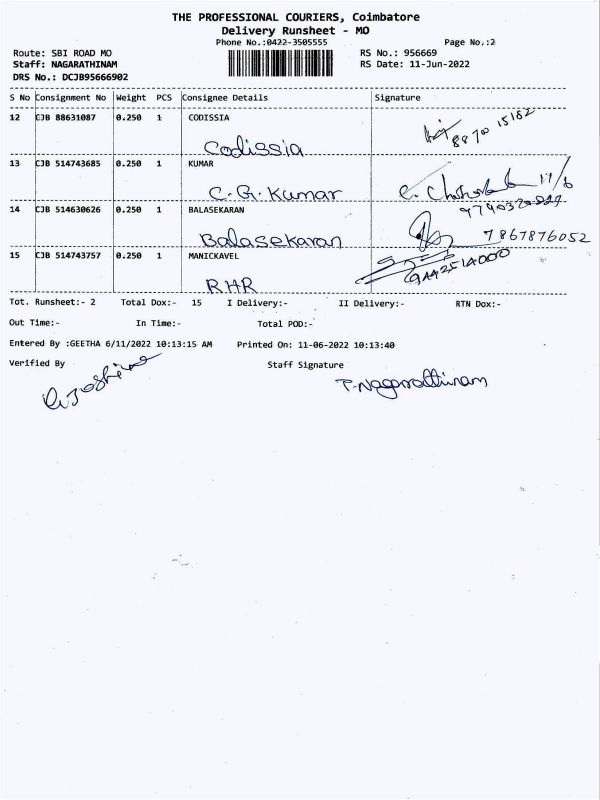 THE PROFESSIONAL COURIERS, Coimbatore
Delivery Runsheet - MO
Phone No.:0422-3505555 Page No.:2
Route: SBI ROAD MO RS No.: 956669
Staff: NAGARATHINAM RS Date: 11-Jun-2022
DRS No.: DCJB95666902
S No Consignment No Weight PCS Consignee Details Signature
12 CJB 88631087 0.250 1 CODISSIA
8870 15182
Codissia
13 CJB 514743685 0.250 1 KUMAR
C.G.Kumar 11/6
14 CJB 514630626 0.250 1 BALASEKARAN
Balasekaran 7867876052
15 CJB 514743757 0.250 1 MANICKAVEL
9442514000
RHR
Tot. Runsheet:- 2 Total Dox:- 15 I Delivery:- II Delivery:- RTN Dox:-
Out Time:- In Time:- Total POD:-
Entered By :GEETHA 6/11/2022 10:13:15 AM Printed On: 11-06-2022 10:13:40
Verified By Staff Signature
P.Nagarathinam